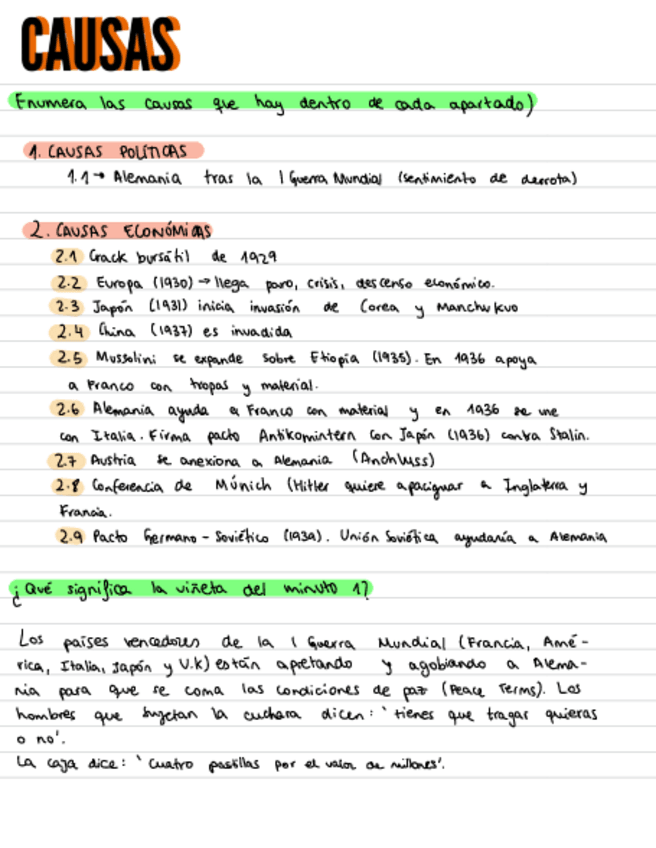 CAUSAS
Enumera las causas que hay dentro de cada apartado)
1. CAUSAS POLÍTICAS
1.1→ Alemania tras la I Guerra Mundial (sentimiento de derrota)
2. CAUSAS ECONÓMICAS
2.1 Crack bursátil de 1929
2.2 Europa (1930) → llega paro, crisis, descenso económico.
2.3 Japón (1931) inicia invasión de Corea y Manchukuo
2.4 China (1937) es invadida
2.5 Mussolini se expande sobre Etiopia (1935). En 1936 apoya
a Franco con tropas y material.
2.6 Alemania ayuda a Franco con material y en 1936 se une
con Italia. Firma pacto Antikomintern con Japón (1936) contra Stalin.
2.7 Austria se anexiona a Alemania (Anchluss)
2.8 Conferencia de Múnich (Hitler quiere apaciguar a Inglaterra y
Francia.
2.9 Pacto Germano-Soviético (1939). Unión Soviética ayudaría a Alemania
¿Qué significa la viñeta del minuto 1?
Los países vencedores de la I Guerra Mundial (Francia, Amé-
rica, Italia, Japón y U.K) están apretando y agobiando a Alema-
nia para que se coma las condiciones de paz (Peace Terms). Los
hombres que sujetan la cuchara dicen: 'tienes que tragar quieras
o no'.
La caja dice: 'Cuatro pastillas por el valor de millones'.